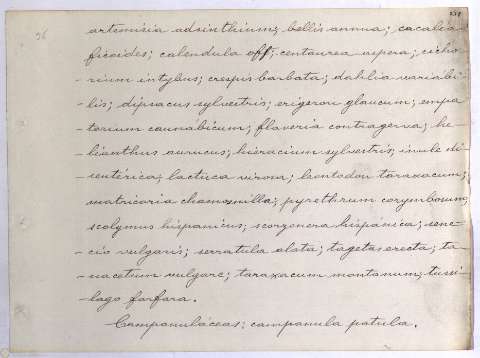 artemisia adsinthium; bellis annua; cacalia
ficoides; calendula off; centaurea aspera; cicho-
-rium intybus; crespus barbata; dahlia variabi-
-lis; dipsacus sylvestris; erigeron glaucum; eupa-
-torium cannábicum; flaveria contragerva; he-
-lianthus annucus; hieracium sylvestris; inule di-
-sentérica; lactuca virosa; leontodon taraxacum;
matricaria chamomilla; pyrethrum corymbosum;
scolymus hispanicus; scorzonera hispánica; sene-
-cio vulgaris; serratula alata; tagetas erecta; ta-
-nacetum vulgare; taraxacum montanum; tussi-
-lago farfara.
Campanuláceas; campanula patula.